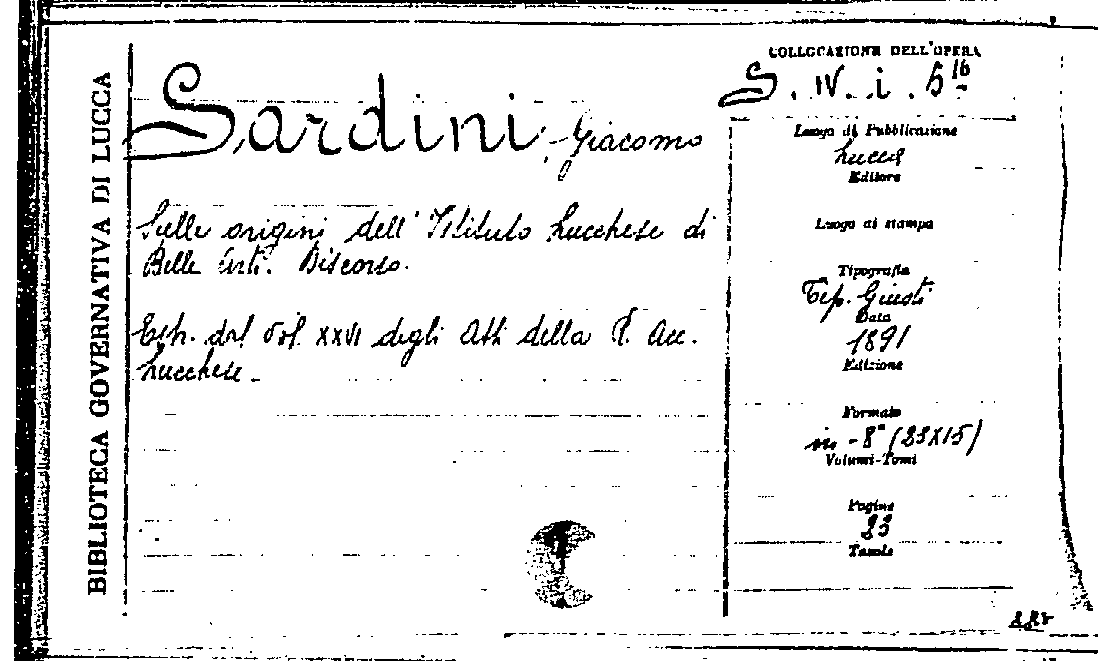 BIBLIOTECA GOVERNATIVA DI LUCCA
Sardini, Giacomo
Sulle origini dell'Istituto Lucchese di
Belle Arti. Discorso.
Estr. dal Vol. XXVI degli Atti della R. Acc.
Lucchese.
COLLOCAZIONE DELL'OPERA
S. IV. i. 5 16
Luogo di Pubblicazione
Lucca
Editore
Luogo di stampa
Tipografia
Tip. Giusti
Data
1891
Edizione
Formato
in-8° (23x15)
Volumi-Tomi
Pagine
23
Tavole